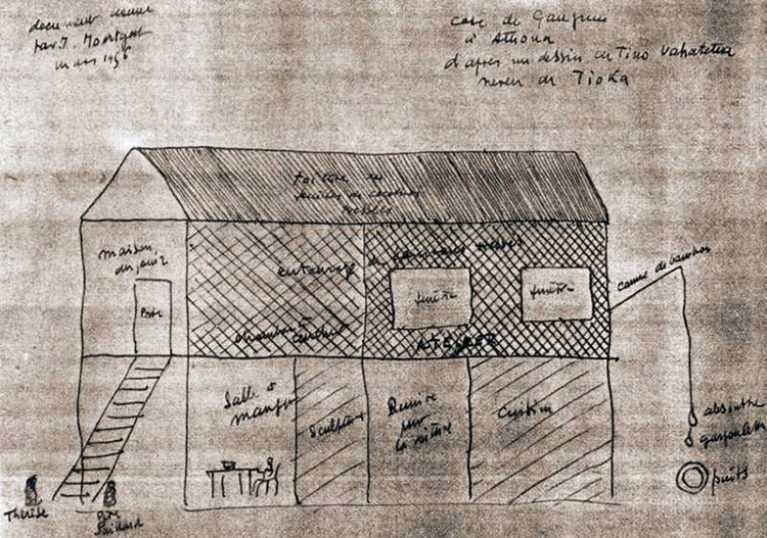 document donné
par J. Moortgat
case de Gauguin
à Atuona
d'après un dessin de Tino
neveu de Tioka
toiture en
feuilles de cocotiers
tressées
maison
du jouir
entourage de bambous tressés
Porte
fenêtre
fenêtre
canne de bambou
chambre à
coucher
ATELIER
Salle à
manger
Sculpture
Remise
pour
la voiture
Cuisine
absinthe
gargoulette
puits
Thérèse
Père
Paillard